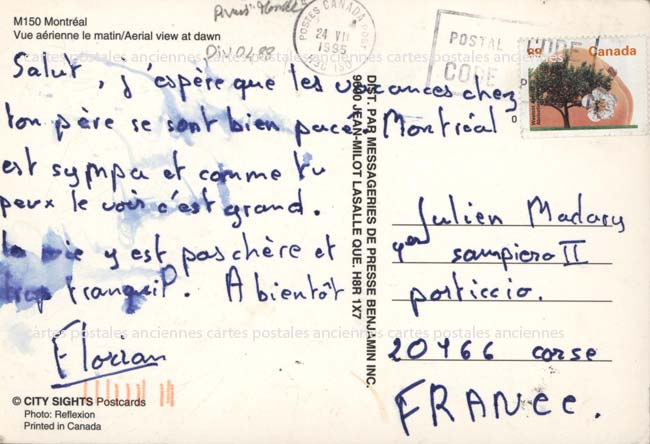 M150 Montréal
Vue aérienne le matin/Aerial view at dawn
Salut, j'espère que tes vacances chez
ton père se sont bien pacé. Montréal
est sympa et comme tu
peux le voir c'est grand.
la vie y est pas chère et
trop tranquil. A bientôt
Florian
© CITY SIGHTS Postcards
Photo: Reflexion
Printed in Canada
DIST. PAR MESSAGERIES DE PRESSE BENJAMIN INC.
9600 JEAN-MILOT LASALLE QUE. H8R 1X7
POSTES CANADA POST
24 VII
1995
POSTAL CODE
CODE
Canada
Julien Madary
sampiero II
porticcio.
20166 corse
FRANCE.
cartes postales anciennes cartes postales anciennes cartes postales anciennes
cartes postales anciennes cartes postales anciennes cartes postales anciennes
cartes postales anciennes cartes postales anciennes cartes postales anciennes